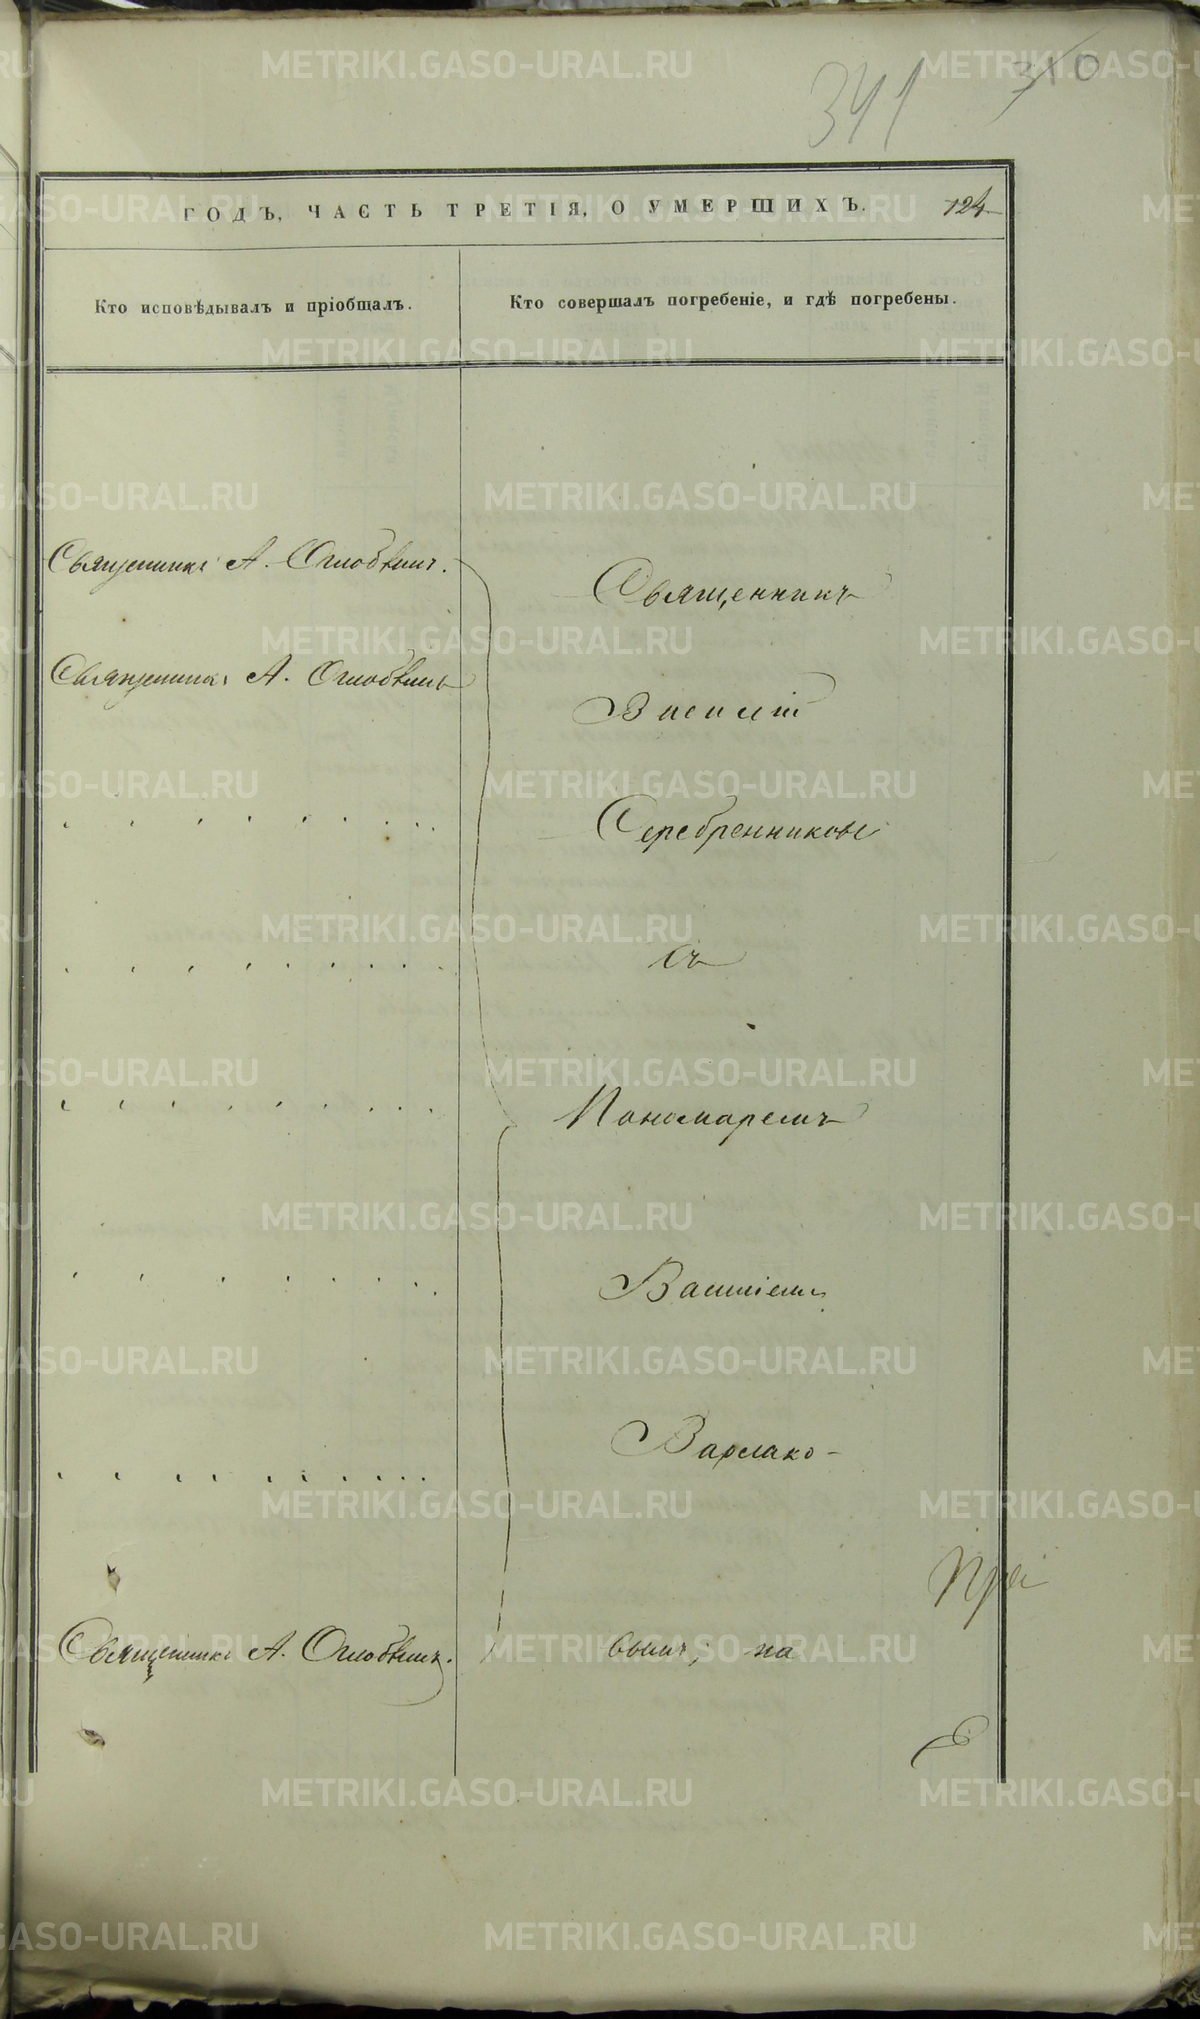 341 310
ГОДЪ, ЧАСТЬ ТРЕТІЯ, О УМЕРШИХЪ. 124
Кто исповѣдывалъ и пріобщалъ.
Кто совершалъ погребеніе, и гдѣ погребены.
Священникъ А. Оглобвинъ.
Священникъ
Священникъ А. Оглобвинъ
Василій
Серебренниковъ
съ
Пономаремъ
Василіемъ
Варлако-
При
Священникъ А. Оглобвинъ.
вымъ; на
METRIKI.GASO-URAL.RU